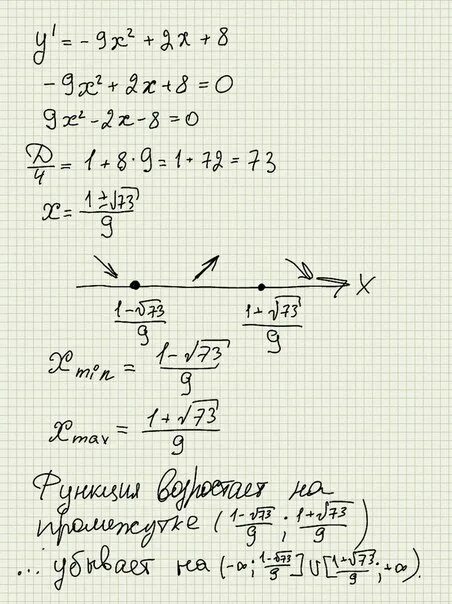 y' = -9x² + 2x + 8
-9x² + 2x + 8 = 0
9x² - 2x - 8 = 0
D/4 = 1 + 8 · 9 = 1 + 72 = 73
x = (1 ± √73)/9
x
(1-√73)/9 (1+√73)/9
x min = (1-√73)/9
x max = (1+√73)/9
Функция возростает на
промежутке ((1-√73)/9 ; (1+√73)/9)
... убывает на (-∞; (1-√73)/9] U [(1+√73)/9 ; +∞).